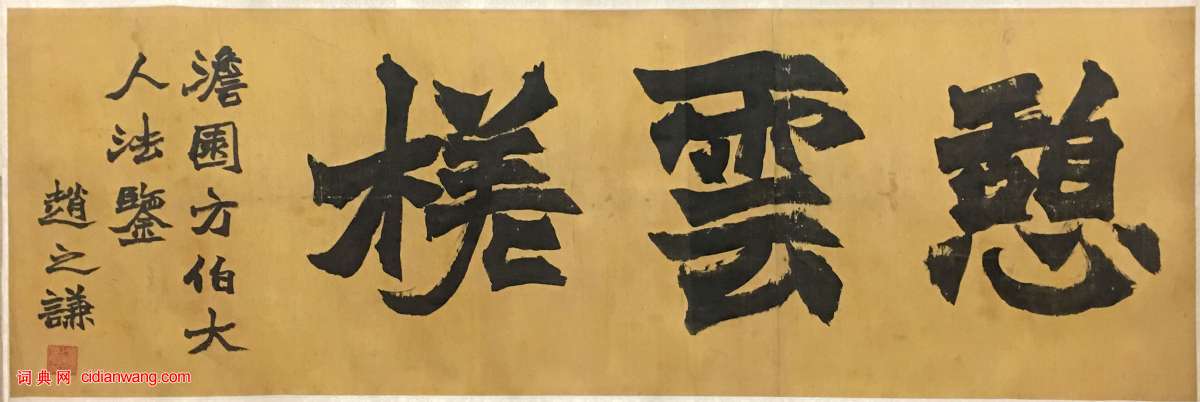 憩雲槎
澹園方伯大
人法鑒
趙之謙
词典网 cidianwang.com